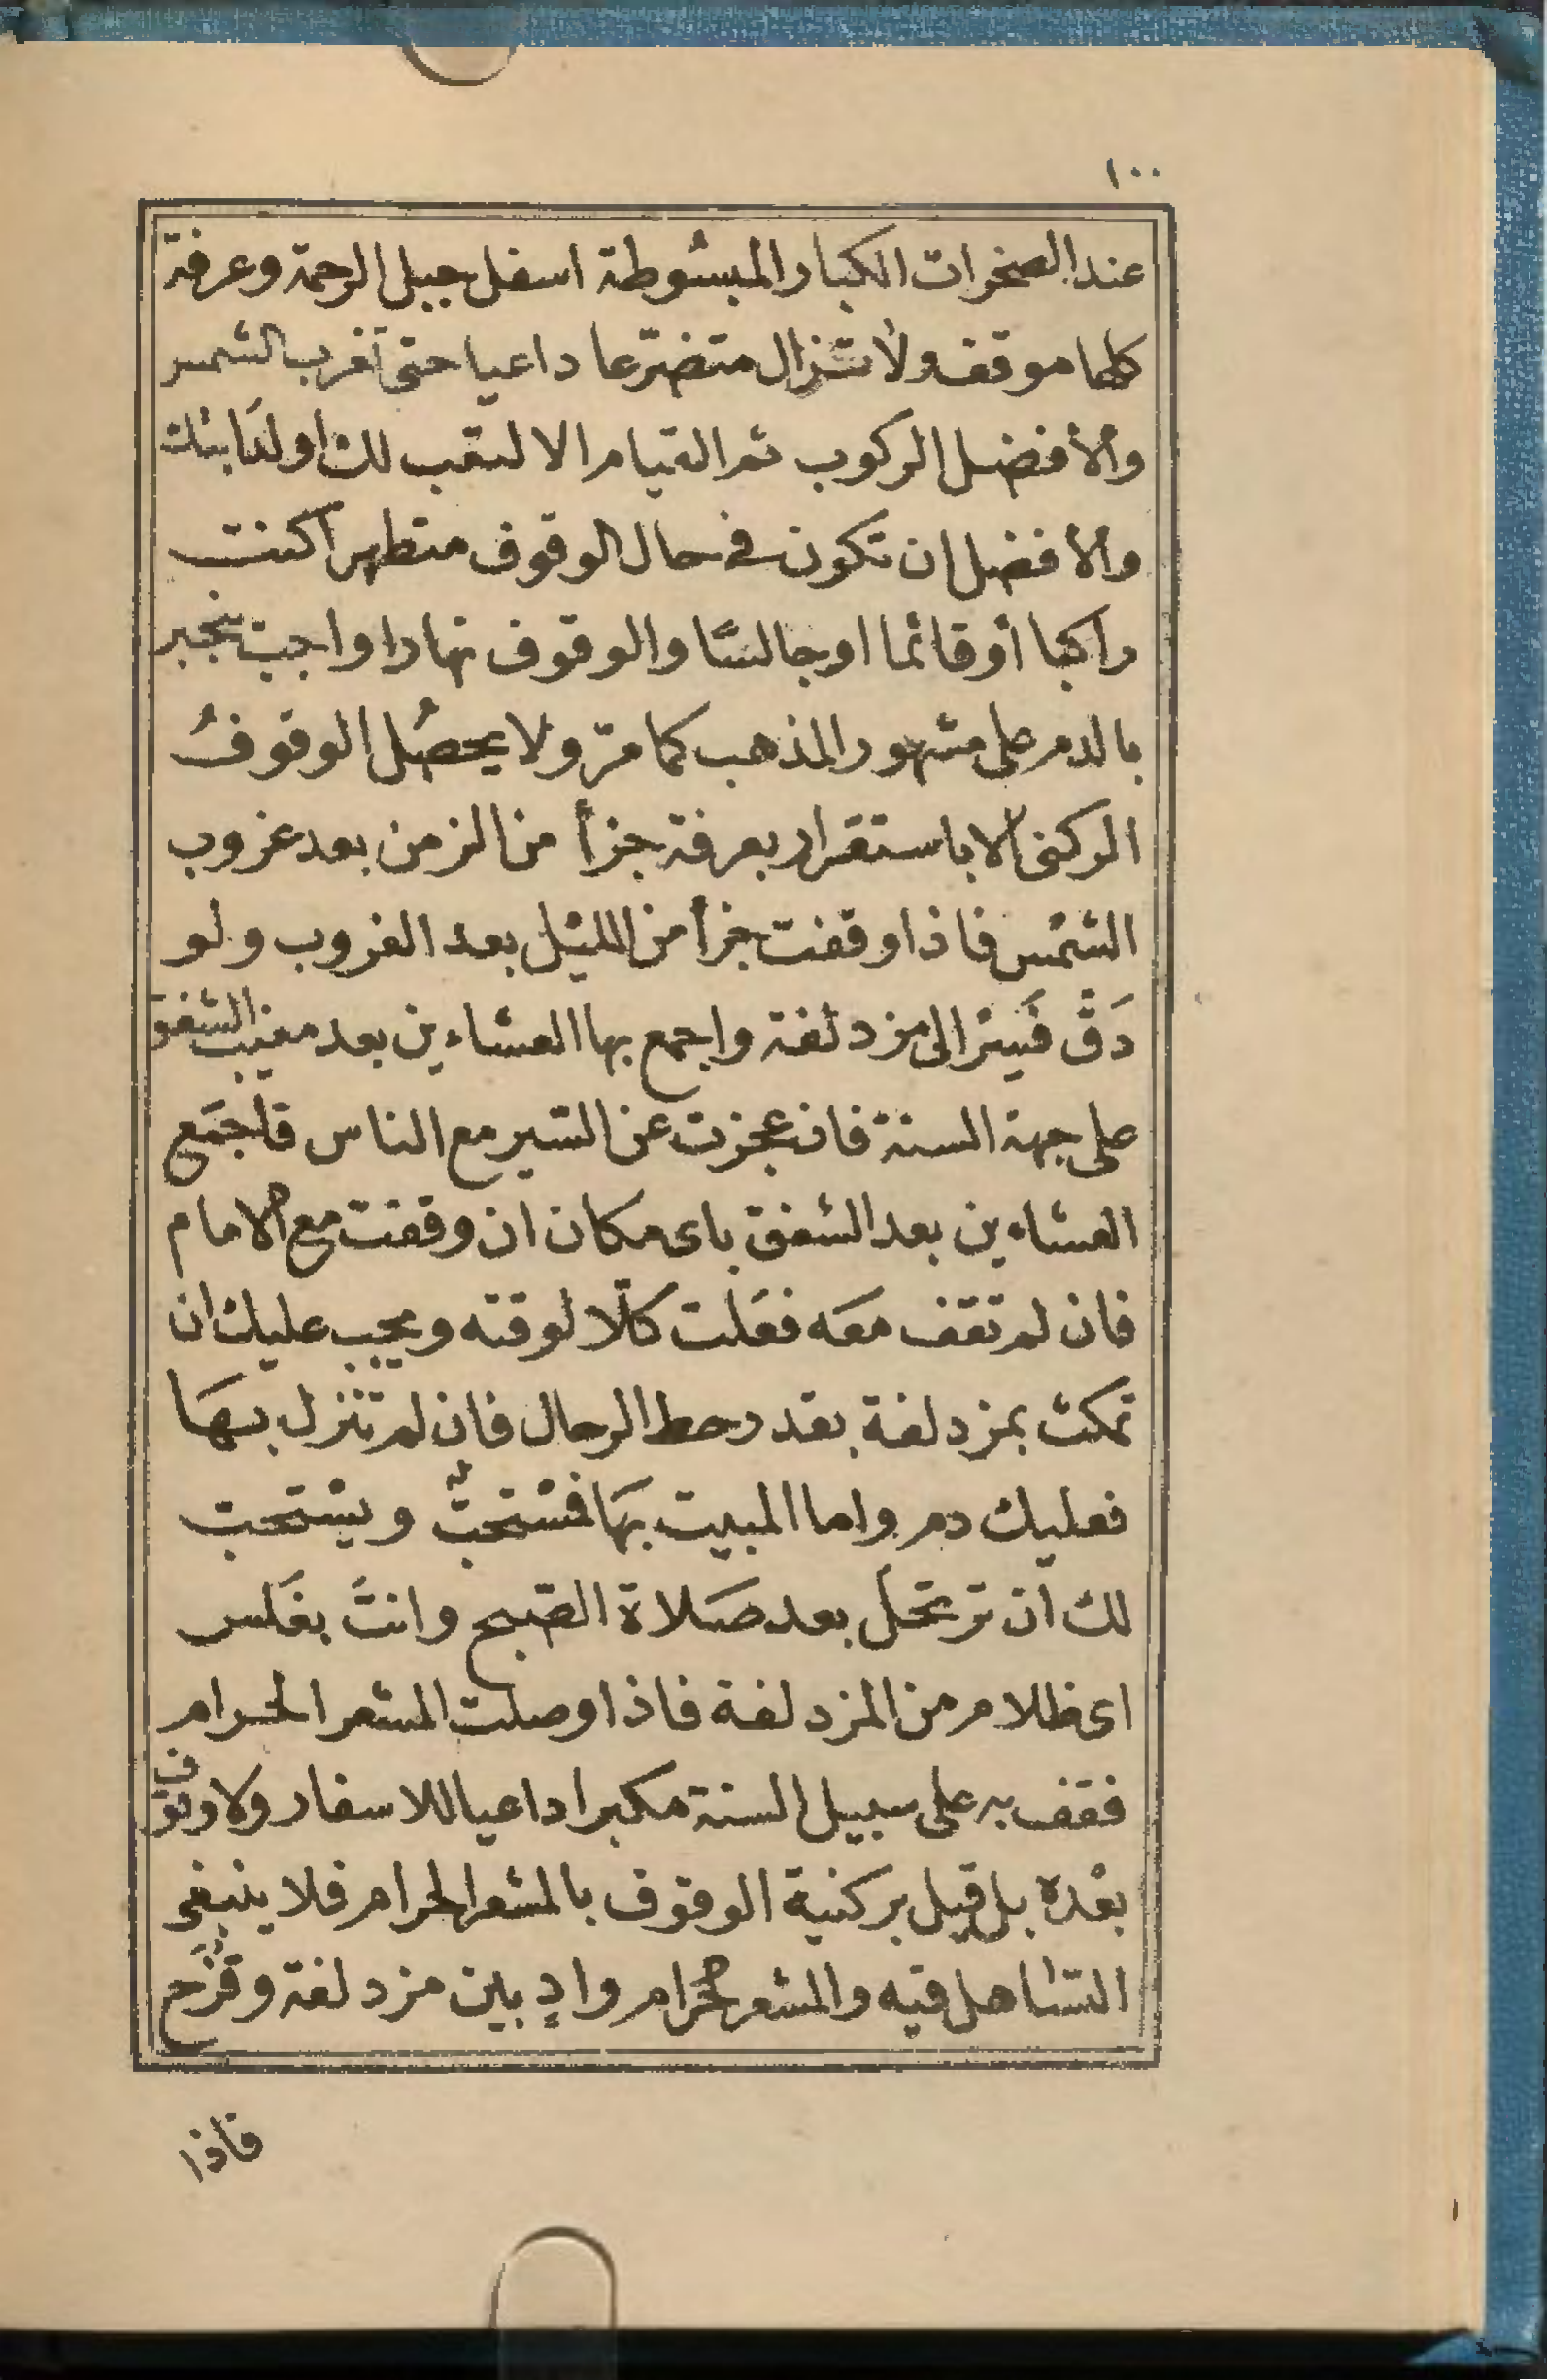 ١٠٠
عند الصخرات الكبار المبسوطة اسفل جبل الرحمة وعرفة
كلها موقف ولا تزال متضرّعا داعيا حتى تغرب الشمس
والأفضل الركوب ثم القيام الا لتعب لك او لدَابتك
والأفضل ان تكون فى حال الوقوف متطهرا كنت
راكبا أوقائما اوجالسًا والوقوف نهارا واجب ينجبر
بالدم على مشهور المذهب كما مرّ ولا يحصُل الوقوفُ
الركنى الا باستقرار بعرفة جزأ من الزمن بعد غروب
الشمس فاذا وقفت جزأ من الليل بعد الغروب ولو
دَقّ فَسِرْ الى مزدلفة واجمع بها العشاءين بعد مغيب الشفق
على جهة السنة فان عجزت عن السّير مع الناس فاجمَع
العشاءين بعد الشفق باى مكان ان وقفت مع الامام
فان لم تقف معَه فعَلت كلّا لوقته ويجب عليك ان
تمكث بمزدلفة بقدر حط الرحال فان لم تنزل بهَا
فعليك دم واما المبيت بهَا فمسْتحبّ ويسْتحبّ
لك ان ترتحلَ بعد صَلاة الصّبح وانتَ بغَلس
اى ظلام من المزدلفة فاذا وصلت المشعر الحرام
فقف به على سبيل السنة مكبرا داعيا للاسفار ولا وقوف
بعْده بل قيل بركنية الوقوف بالمشعر الحرام فلا ينبغى
التساهل فيه والمشعر الحرام وادٍ بين مزدلفة وقُزَح
فاذا